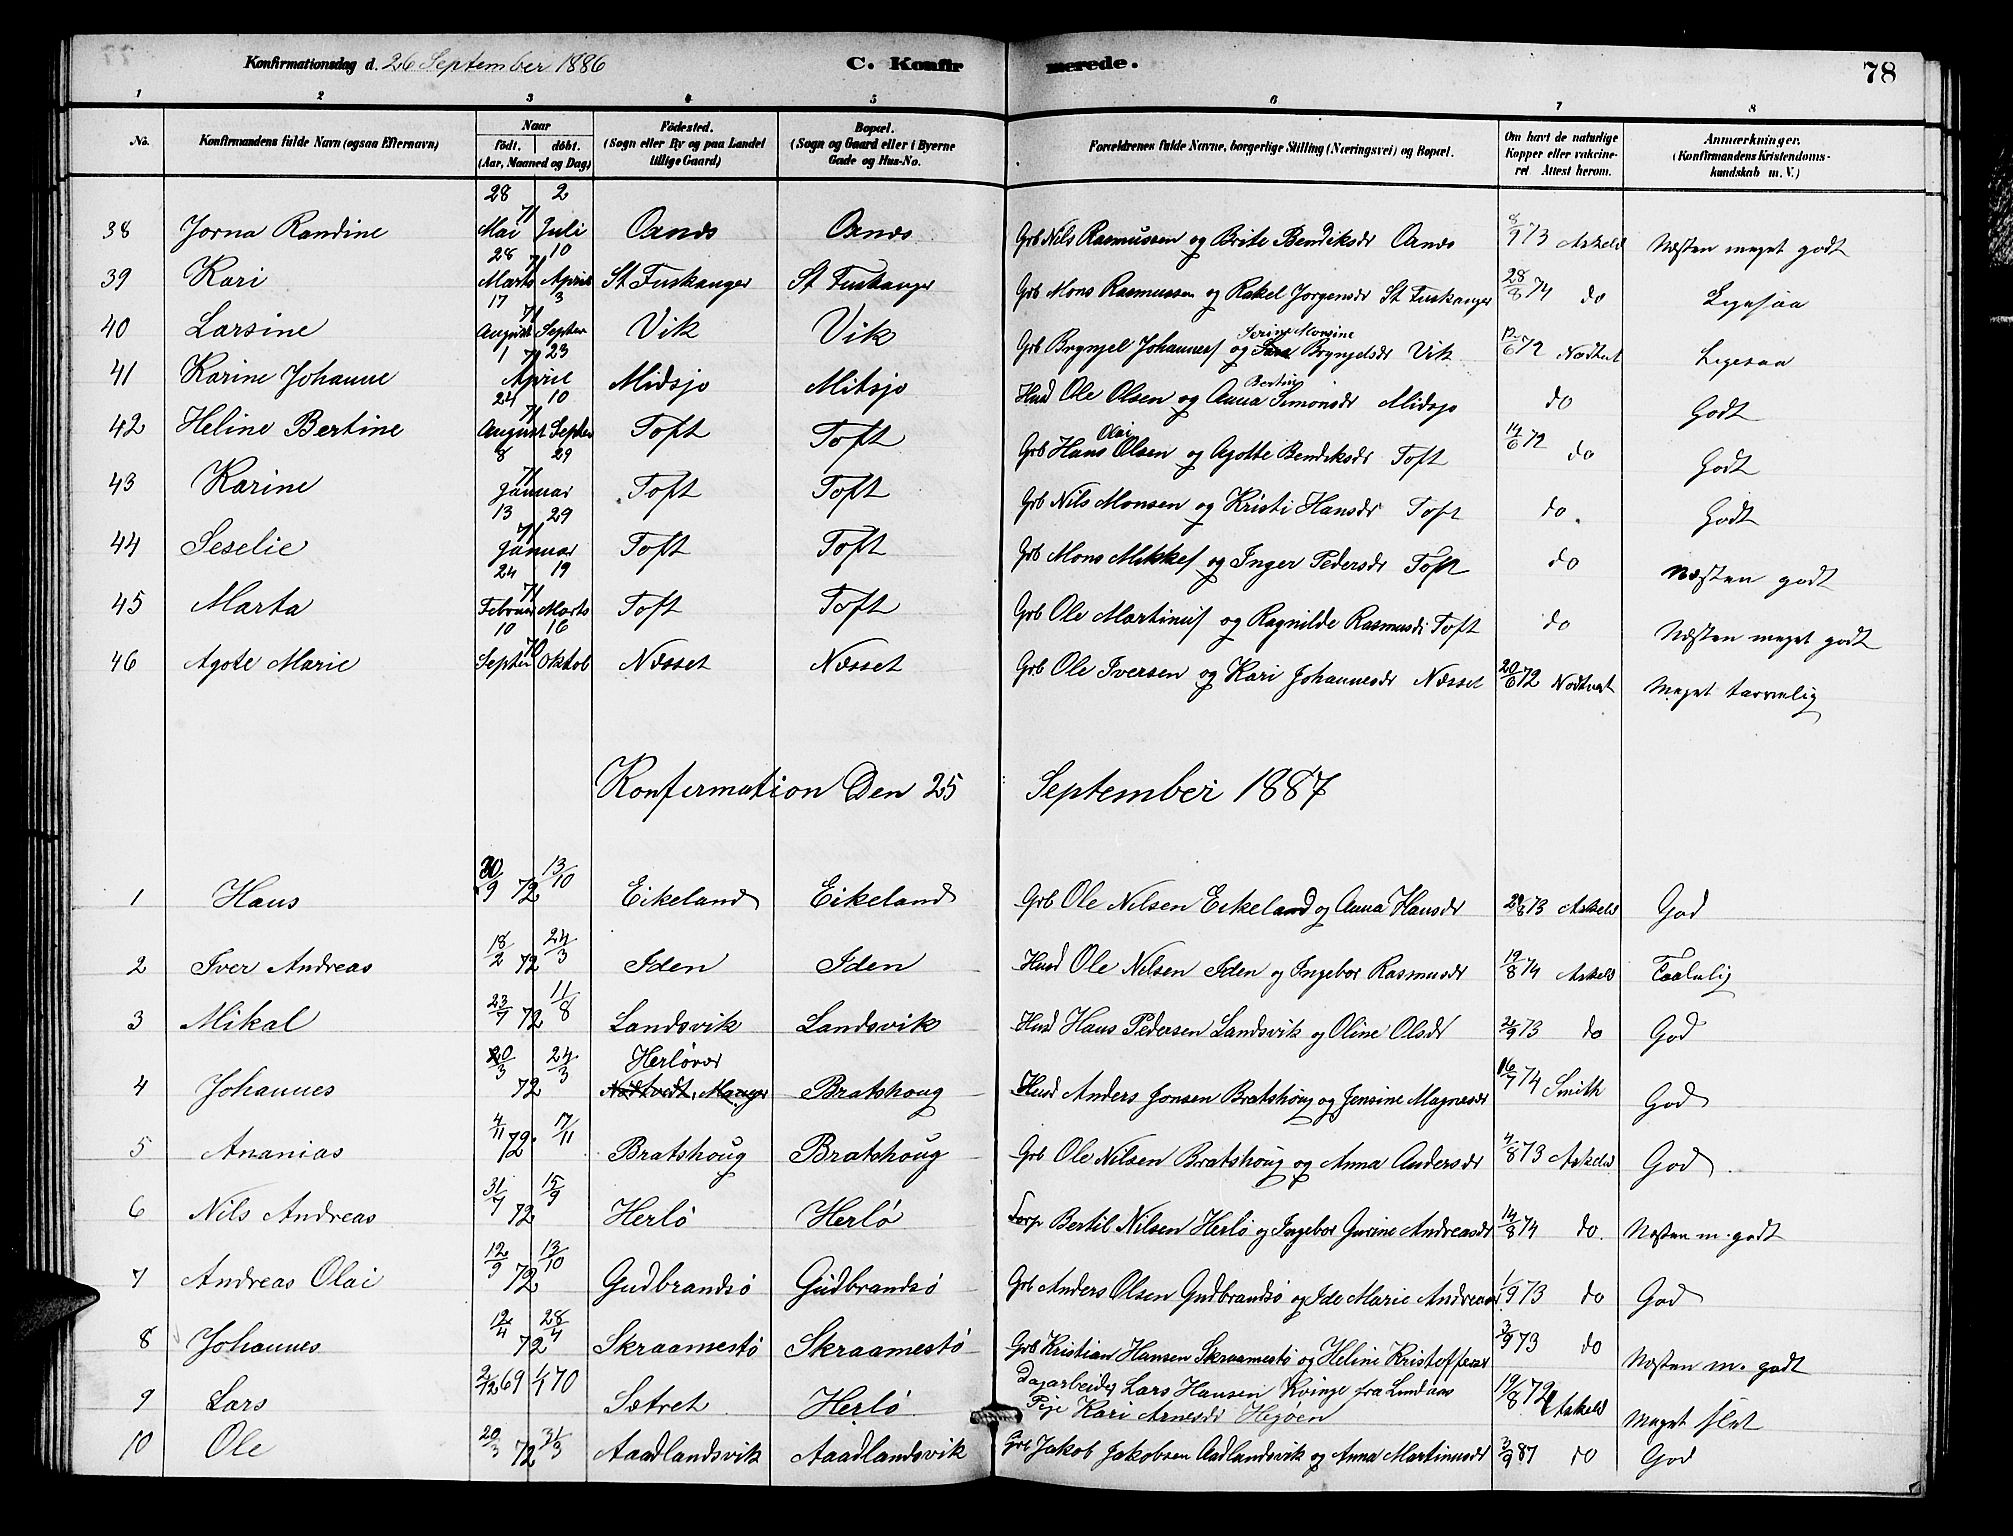 Konfirmationsdag d. 26 September 1886 C. Konfirmerede. 78
1 2 3 4 5 6 7 8
No. Konfirmandens fulde Navn (ogsaa Efternavn) Naar födt. döbt. (Aar, Maaned og Dag) Födested. (Sogn eller By og paa Landet tillige Gaard) Bopæl. (Sogn og Gaard eller i Byerne Gade og Hus-No. Forældrenes fulde Navne, borgerlige Stilling (Næringsvei) og Bopæl. Om havt de naturlige Kopper eller vakcineret Attest herom. Anmærkninger. (Konfirmandens Kristendomskundskab m. V.)
38 Jorna Randine 28 Mai 71 2 Juli Oxnes Oxnes Grb Nils Rasmussen og Brite Bendiksdr Oxnes 73 Askeld Næsten meget godt
39 Kari 28 Marts 71 10 April St Fuskanger St Fuskanger Grb Mons Rasmussen og Rakel Jorgensdr St Fuskanger 28/8 74 do Ligesaa
40 Larsine 17 August 71 3 Septer Vik Vik Grb Brynjel Johannes og Serine Monsine Brynjelsdr Vik 12/6 72 Nodtvet Ligesaa
41 Karine Johanne 1 71 23 April Midsjo Mitsjo Husd Ole Olsen og Anna Bertin Simonsdr Midsjo do Godt
42 Heline Bertine 24 August 71 10 Septer Toft Toft Grb Hans Olai Olsen og Agotte Bendiksdr Toft 14/6 72 do Godt
43 Karine 8 71 29 Januar Toft Toft Grb Nils Monsen og Kristi Hansdr Toft do Godt
44 Seselie 13 71 29 Januar Toft Toft Grb Mons Mikkels og Inger Pedersdr Toft do Næsten godt
45 Marta 24 Februar 71 19 Marts Toft Toft Grb Ole Martinus og Ragnilde Rasmusdr Toft do Næsten meget godt
46 Agote Marie 10 Septer 70 16 Oktob Næsset Næsset Grb Ole Iversen og Kari Johannesdr Næsset 20/6 72 Nodtvet Meget tarvelig
Konfirmation Den 25 September 1887
1 Hans 30/9 72 13/10 Eikeland Eikeland Grb Ole Nilsen Eikeland og Anna Hansdr 29/8 73 Askeld God
2 Iver Andreas 18/2 72 24/3 Iden Iden Husd Ole Nilsen Iden og Ingebor Rasmusdr 19/8 74 Askeld Taalelig
3 Mikal 23/7 72 11/8 Landsvik Landsvik Husd Hans Pedersen Landsvik og Oline Olsdr 2/9 73 do God
4 Johannes 20/3 72 24/3 Herlövær Nødtvedt, Manger Bratshoug Husd Anders Jonsen Bratshoug og Jensine Magnesdr 16/7 74 Smith God
5 Ananias 4/11 72 17/11 Bratshoug Bratshoug Grb Ole Nilsen Bratshoug og Anna Andersdr 4/8 73 Askeld God
6 Nils Andreas 31/7 72 15/9 Herlö Herlö Bertil Nilsen Herlö og Ingebor Gurine Andreasdr 14/8 74 do. Næsten m. godt
7 Andreas Olai 12/9 72 13/10 Gudbrandsö Gudbrandsö Grb Anders Olsen Gudbrandsö og Ide Marie Andreas 1/9 73 do God
8 Johannes 12/4 72 28/4 Skraamestö Skraamestö Grb Kristian Hansen Skraamestö og Heline Kristoffersdr 3/9 73 do Næsten m. godt
9 Lars 2/12 69 1/1 70 Sætret Herlö Dagarbeider Lars Hansen Kvinge fra Lindaas
Pige Kari Arnesdr Hejöen 19/8 72 Askeld Meget slet
10 Ole 20/3 72 31/3 Aaadlandsvik Aaadlandsvik Grb Jakob Jakobsen Aadlandsvik og Anna Martinusdr 3/9 87 do God